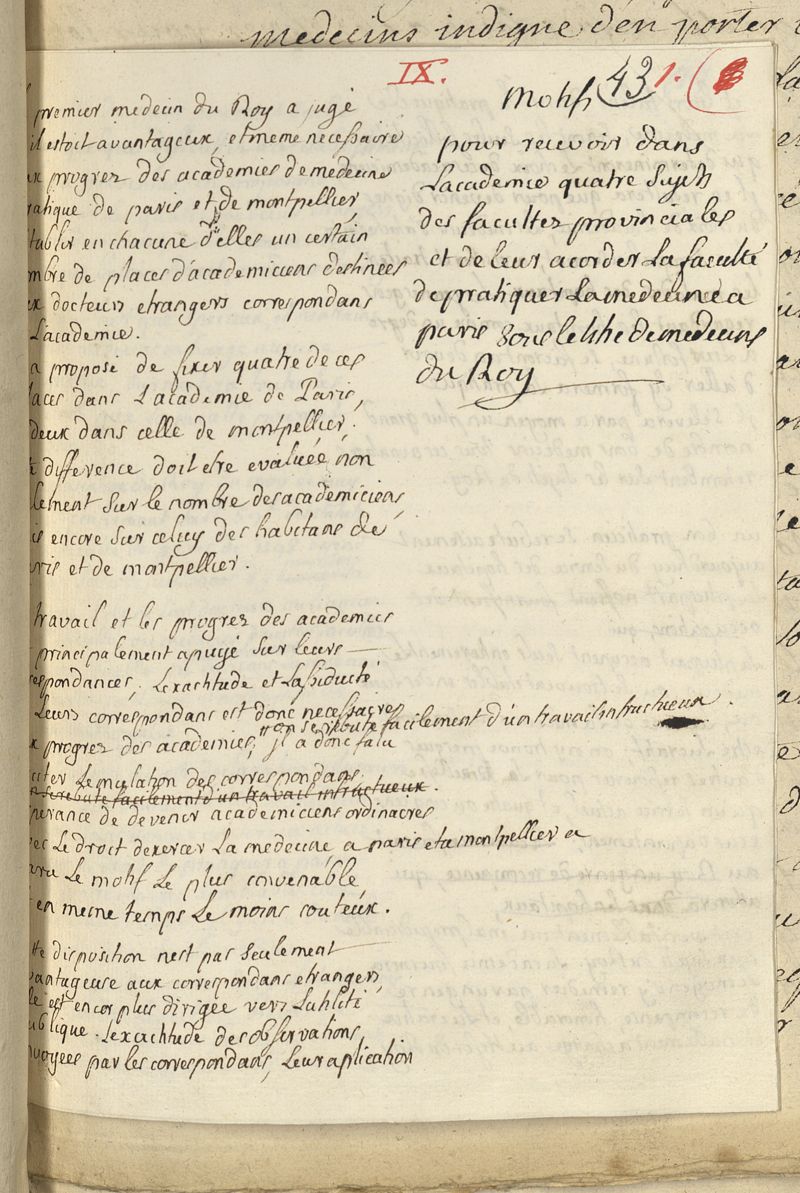 medecins indigne d'en porter
IX.
43 1.
Motifs
pour recevoir dans
Lacademie quatre Sujets
des facultez provinciales
et de leur acorder La faculté
de pratiquer La medecine a
paris sous le titre de medecins
du Roy
premier medecin du Roy a jugé
il estoit avantageux, et meme necessaire
ux progrez des academies de medecine
ratique de paris et de montpellier,
tablir en chacune d'elles un certain
mbre de places d'academiciens destinees
ux docteurs etrangers correspondans
L'academie.
a proposé de fixer quatre de ces
laces dans L'academie de Paris,
deux dans celle de montpellier.
difference doit etre evaluée non
lement sur le nombre des academiciens,
is encore sur celuy des habitans de
ris et de montpellier.
travail et les progrez des academies
principalement apuyé sur leurs
respondances, Lexactitude et Lassiduité
Leurs correspondans est donc necessaire
x progrez des academies, on se rebute facilement d'un travail infructueux.
il a donc falu
citer Lemulation des correspondans.
n se rebute facilement d'un travail infructueux.
perance de devenir academiciens ordinaires
vec Le droit dexercer La medecine a paris et a montpellier a
aru Le motif Le plus convenable,
en meme temps Le moins couteux.
tte disposition nest pas seulement
vantageuse aux correspondans etrangers,
le est encor plus dirigée vers Lutilité
ublique. Lexactitude des observations,
nvoyees par les correspondans, Leur aplication